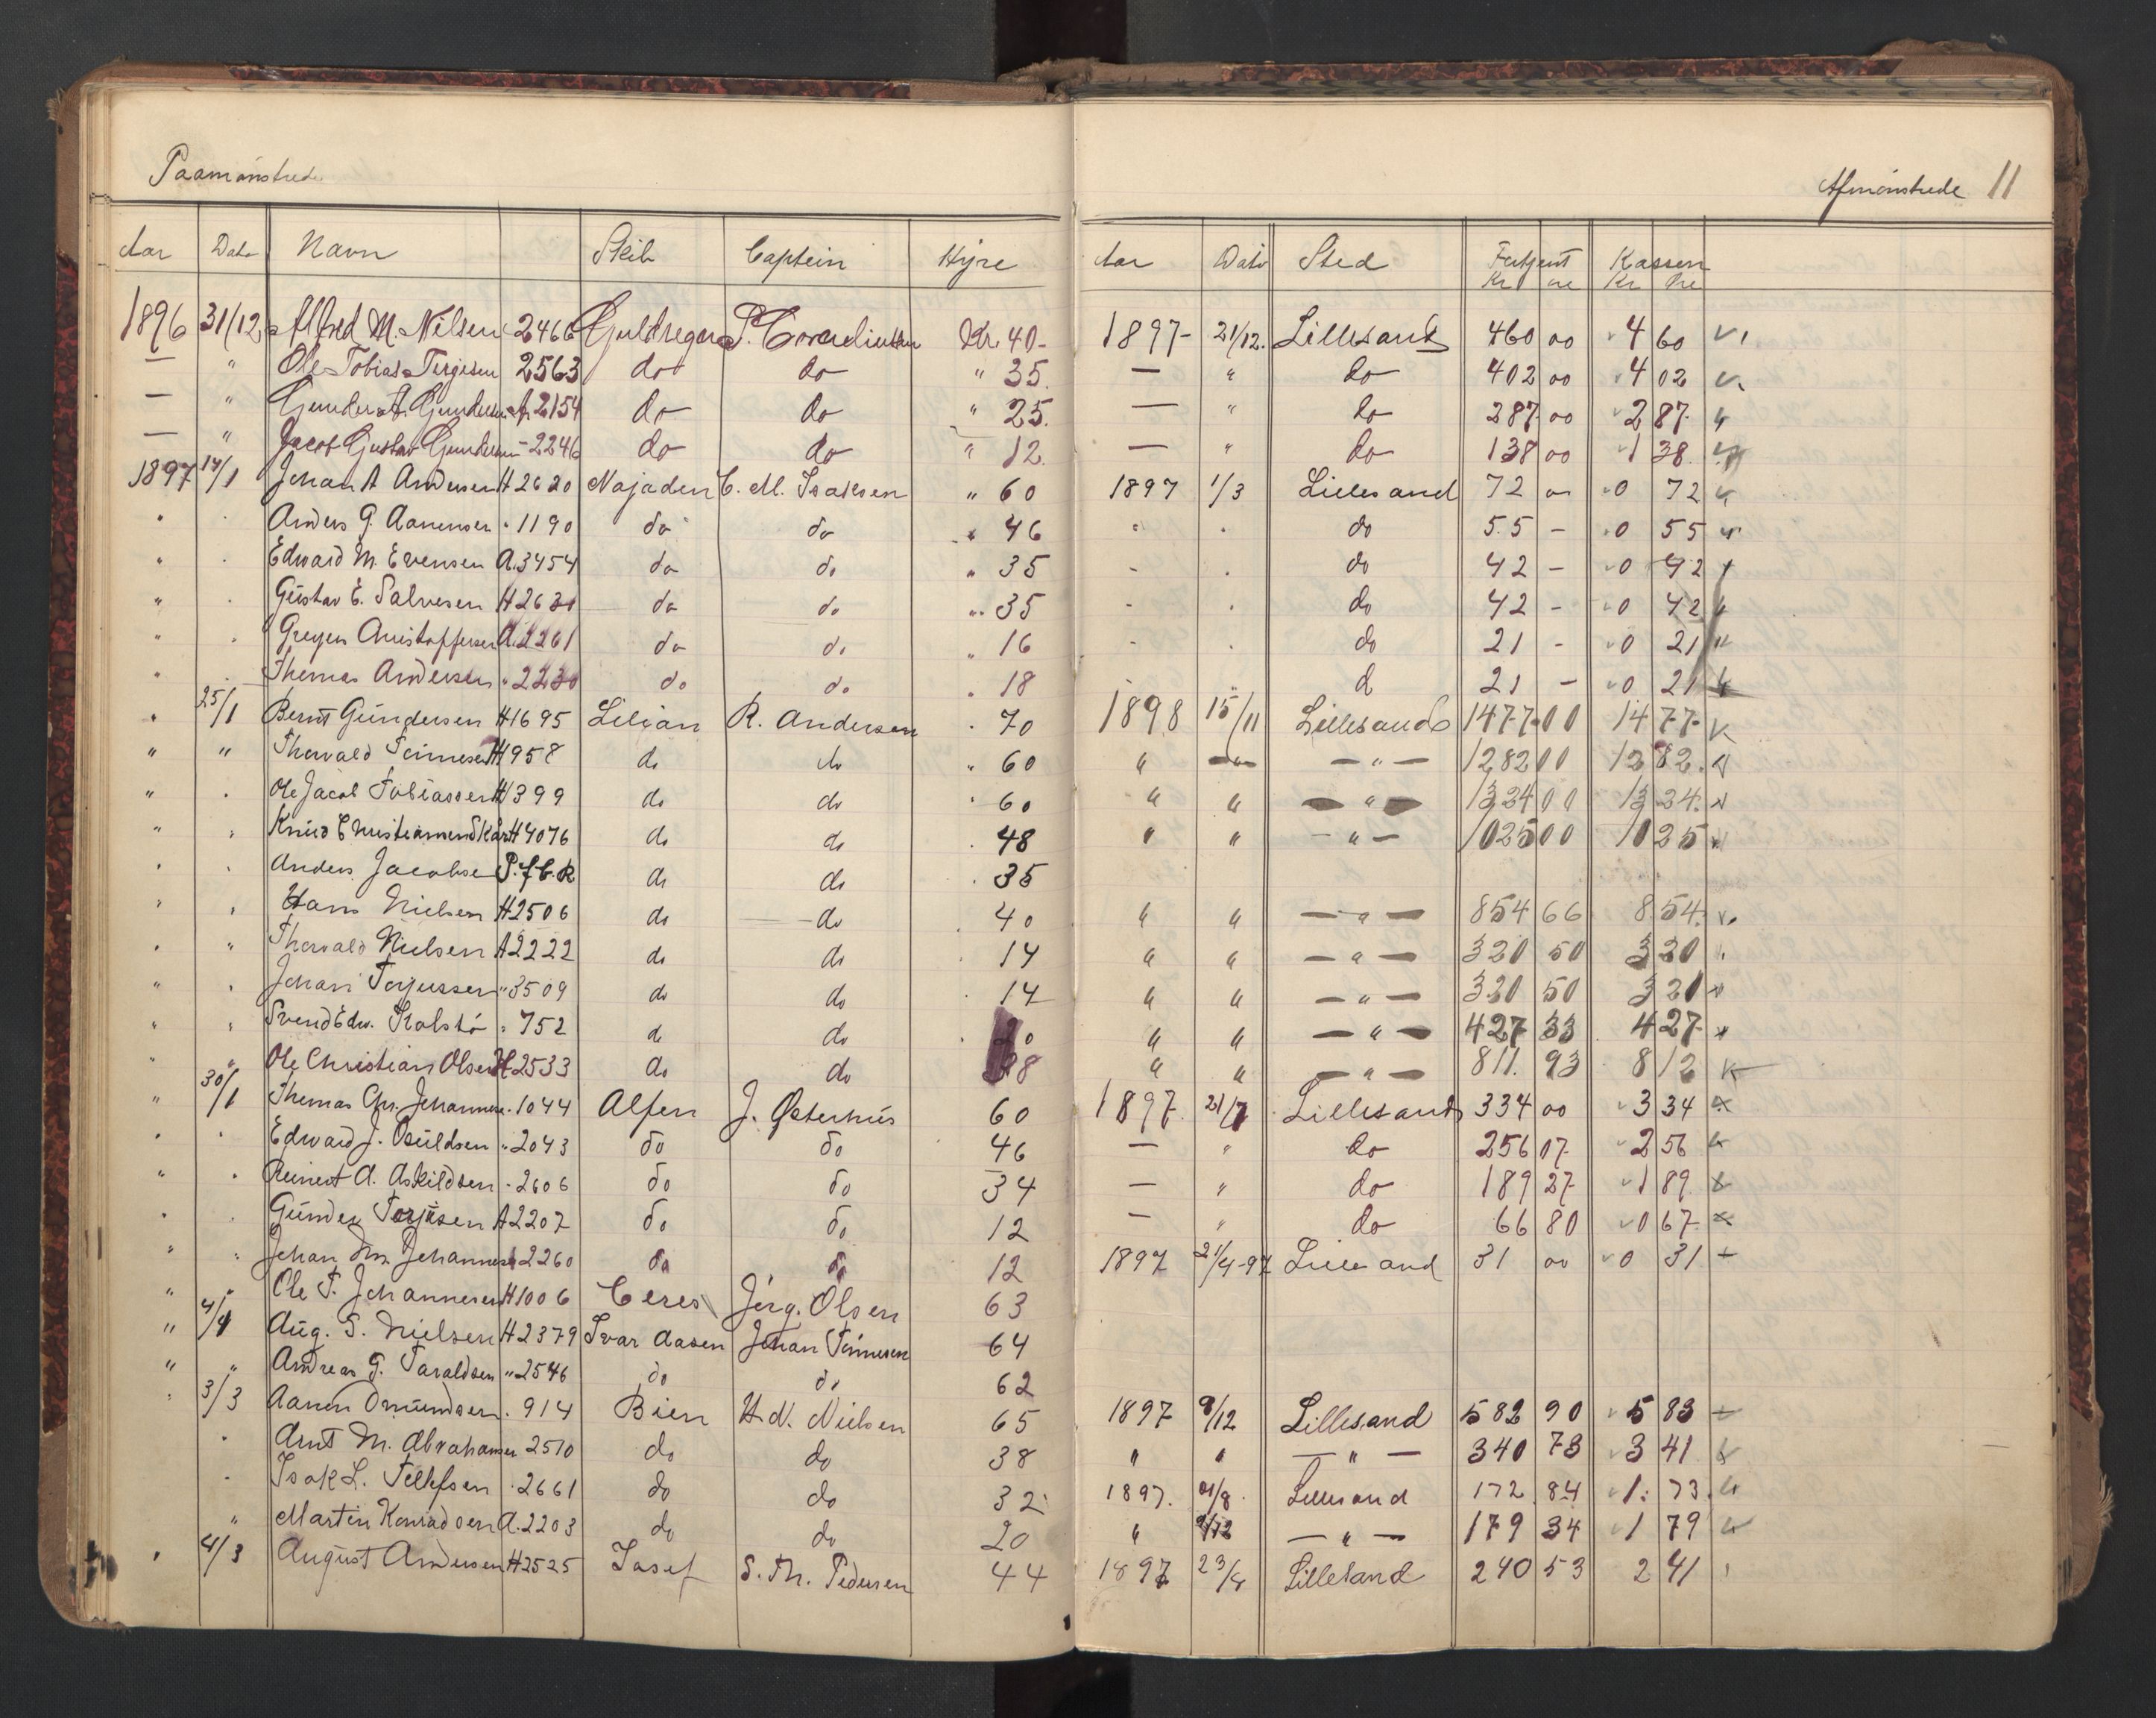 Paamønstrede
Afmønstrede 11
Aar Dato Navn Skib Captein Hyre Aar Dato Sted Fortjent Kassen
Kr øre Kr øre
1896 31/12 Alfred M. Nilsen 2466 Guldregn P. Corneliussen Kr. 40- 1897- 21/12. Lillesand 460 00 4 60
— " Ole Tobias Tergesen 2563 do do " 35. — " do 402 00 4 02
— " Gunder A. Gundersen A. 2154 do do " 25. — " do 287 00 2 87
— " Jacob Gustav Gundersen - 2246 do do " 12. — " do 138 00 1 38
1897 14/1 Johan A Andersen H 2620 Najaden C. M. Isaksen " 60 1897 1/3 Lillesand 72 00 0 72
" . Anders G. Aanensen . 1190 do do " 46 " . do 55 - 0 55
" . Edward M. Evensen A. 3454 do do " 35 - . do 42 - 0 42
" . Gustav E. Salvesen H 2631 do do " 35 - . do 42 - 0 42
" . Gregers Christoffersen A. 2261 do do " 16 - . do 21 - 0 21
" . Thomas Andersen . 2230 do do . 18 " d 21 - 0 21
. 25/1 Bernt Gundersen H 1695 Lilian R. Andersen . 70 1898 15/11 Lillesand 1477 00 14 77
" " Thorvald Tønnesen H 958 do do " 60 " —"— —"— 1282 00 12 82.
" . Ole Jacob Tobiassen H 399 do do . 60 " " —"— 1324 00 13 24.
" . Knud Christiansen Skår H 4076 do do . 48 " " —"— 1025 00 10 25
. . Anders Jacobsen P. f. C. R do do . 35
" . Hans Nielsen H 2506 do do . 40 " " —"— 854 66 8 54.
. " Thorvald Nielsen A 2222 do do . 14 " " —"— 320 50 3 20
" . Johan Terjussen " 3509 do do . 14 " " —"— 320 50 3 21
" . Svend Edv. Kalstø . 752 do do " " —"— 427 33 4 27
" " Ole Christian Olsen H 2533 do do 38 " " —"— 811. 93 8 12
" 30/1 Thomas Chr. Johannesen . 1044 Alfen J. Østerhus 60 1897. 21/7 Lillesand 334 00 3 34
. . Edward J. Osuldsen " 2043 do do 46 — " do 256 07 2 56
" . Reinert A. Askildsen - 2606 do do 34 — " do 189 27 1 89
. . Gunder Terjesen A 2207 do do 12 — " do 66 80 0 67
" " Johan M. Johannesen 2260 do do 12 1897 21/4-97 Lillesand 31 00 0 31
" " Ole T. Johannesen H 1006 Ceres Jørg. Olsen 63
" 4/1 Aug. S. Nielsen H 2379 Ivar Aasen Johan Tønnesen 64
" " Andreas G. Taraldsen " 2546 do do 62
. 3/3 Aanen Omundsen . 914 Bien H. N. Nielsen 65 1897 9/12 Lillesand 582 90 5 83
" Arnt M. Abrahamsen 2510 do do 38 " " —"— 340 73 3 41
" Isak L. Tellefsen . 2661 do do 32 1897. 21/8 Lillesand 172 84 1 73
" Martin Konradsen A. 2203 do do 20 " 9/12 —"— 179 34 1 79
. 4/3 August Andersen H 2525 Josef S. Th. Pedersen 44 1897 23/8 Lillesand 240 53 2 41